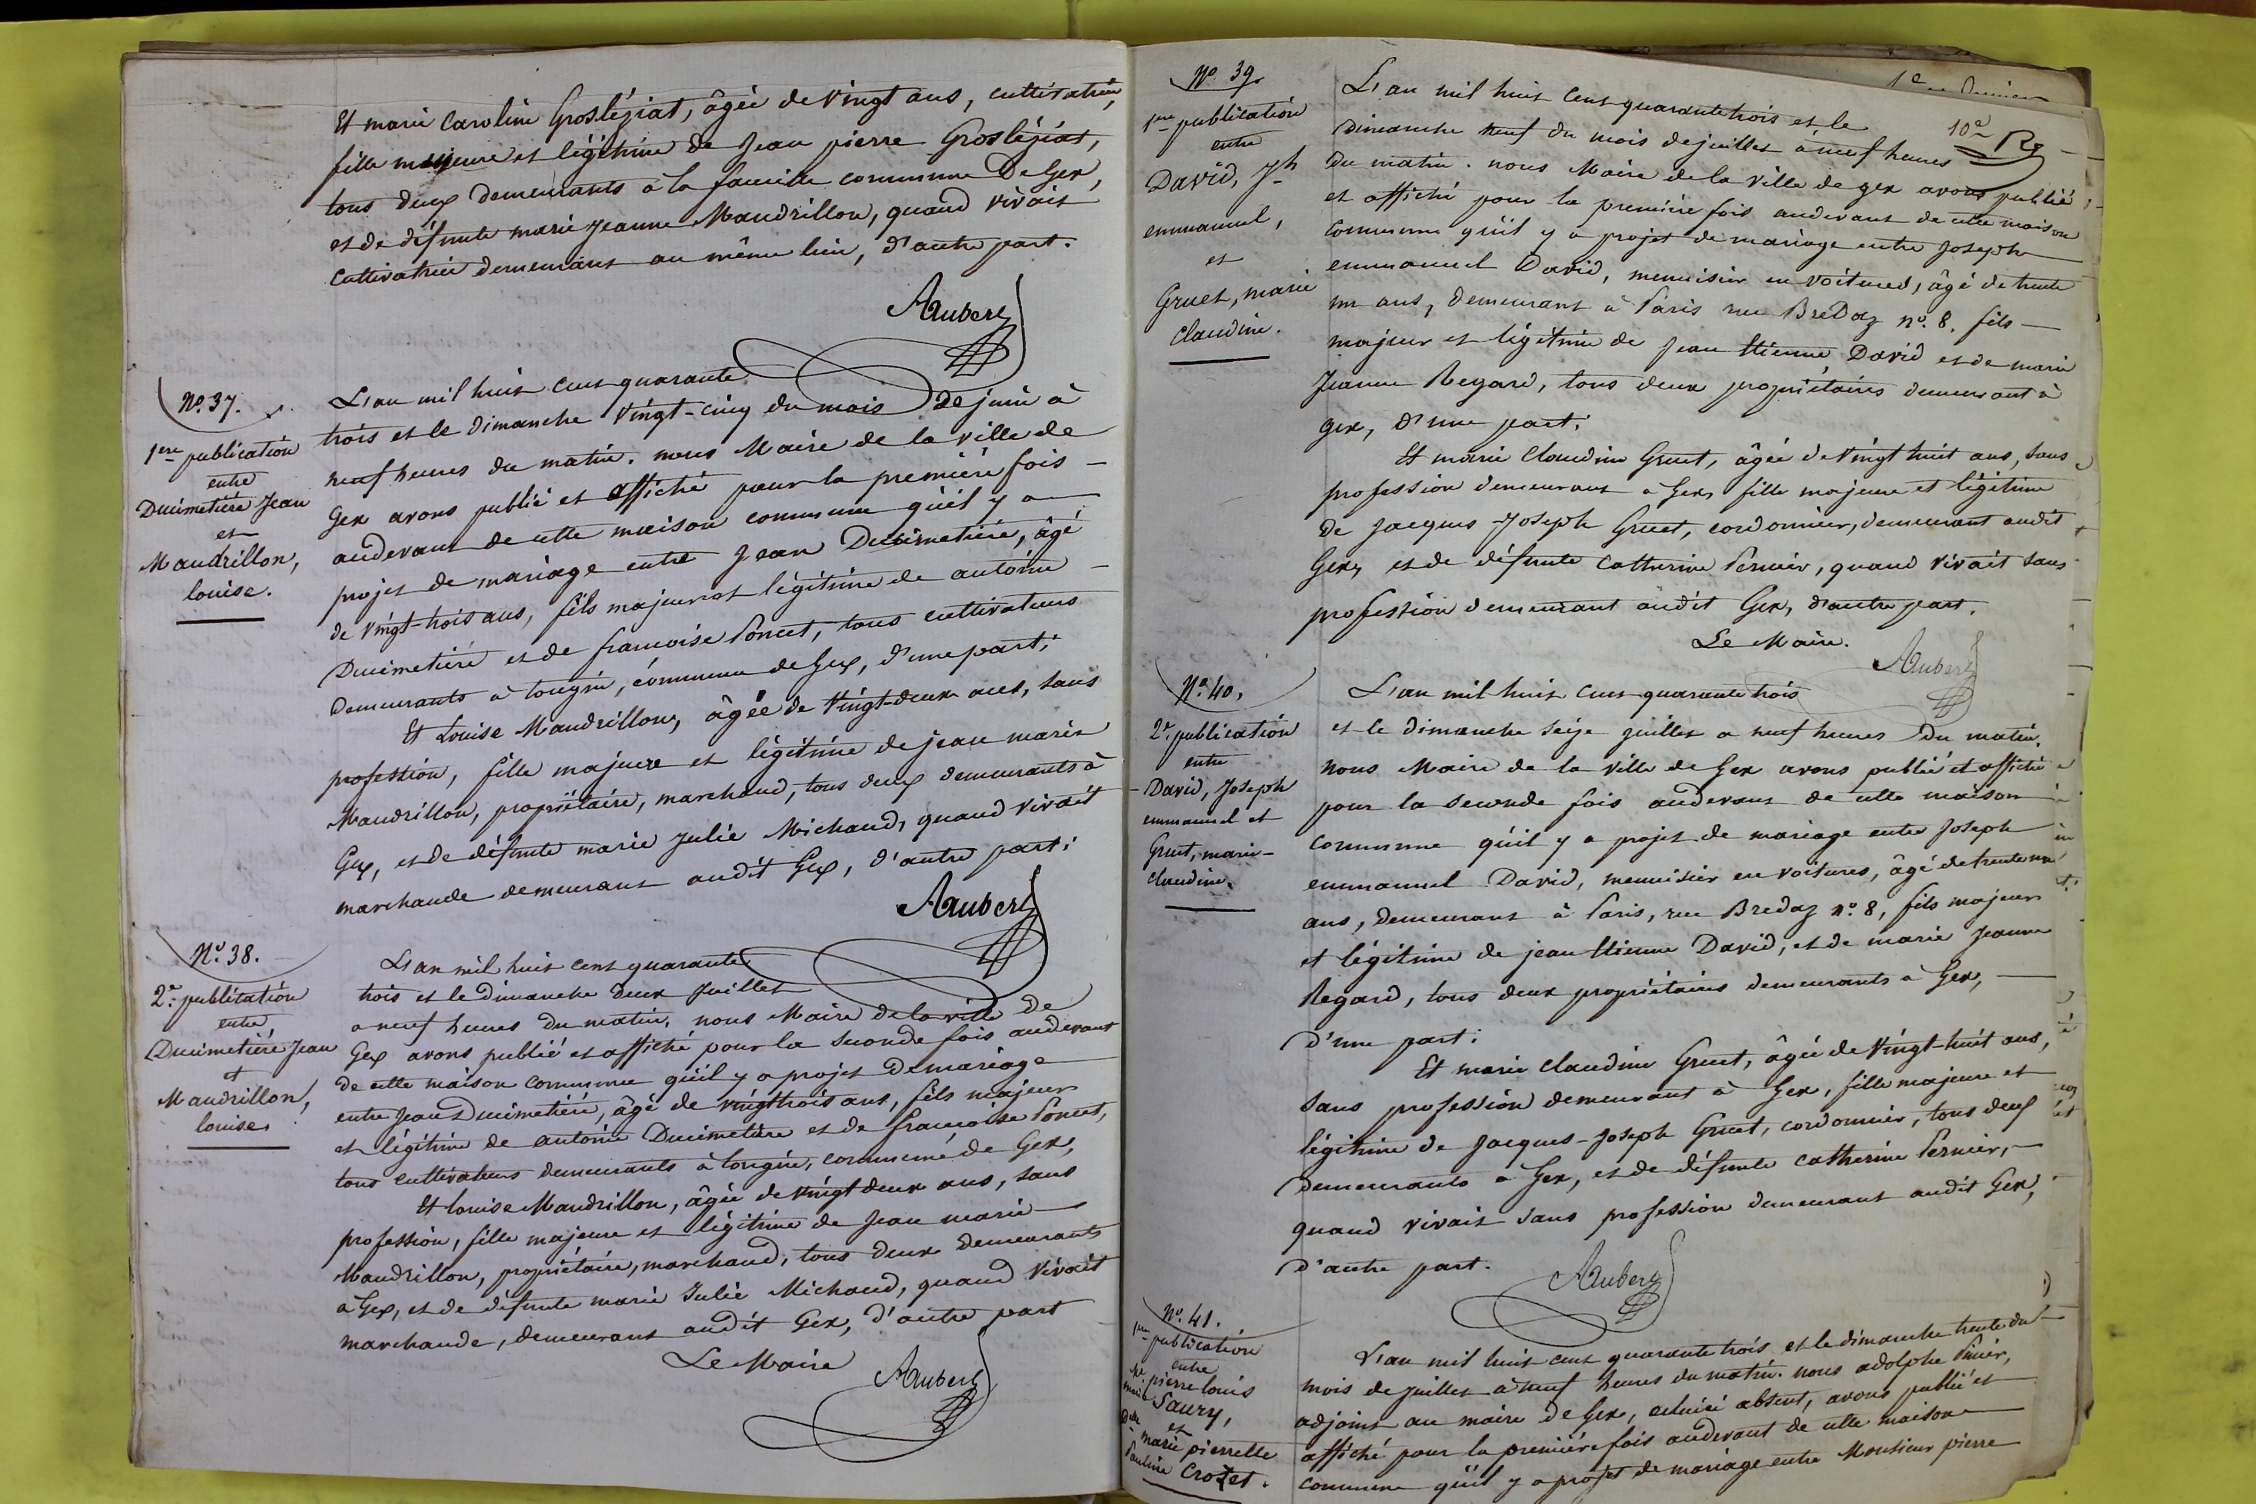 Et marie Caroline Groslégiat, âgée de vingt ans, cultivatrice,
fille majeure et légitime de Jean pierre Groslégiat,
tous deux demeurants à la faucille commune De Gex,
et de défunte marie Jeanne Mandrillon, quand vivait
cultivatrice demeurant au même lieu, d'autre part.
Aubert
No. 37.
1ere publication
entre
Ducimetière Jean
et
Mandrillon,
louise.
L'an mil huit cent quarante
trois et le dimanche vingt-cinq du mois de juin à
neuf heures du matin. nous Maire de la ville de
Gex avons publié et affiché pour la première fois
audevant de cette maison commune qu'il y a
projet de mariage entre Jean Ducimetière, âgé
de vingt-trois ans, fils majeur et légitime de antoine
Ducimetière et de francoise Poncet, tous cultivateurs
demeurants à tougin, commune de Gex, d'une part;
Et Louise Mandrillon, âgée de vingt-deux ans, sans
profession, fille majeure et légitime de jean marie
Mandrillon, propriétaire, marchand, tous deux demeurants à
Gex, et de défunte marie Julie Michaud, quand vivait
marchande demeurant audit Gex, d'autre part;
Aubert
No. 38.
2e. publication
entre,
Ducimetière Jean
et
Mandrillon,
louise.
L'an mil huit cent quarante
trois et le dimanche deux Juillet
a neuf heures du matin. nous Maire de la ville de
Gex avons publié et affiché pour la seconde fois audevant
de cette maison commune qu'il y a projet de mariage
entre Jean Ducimetière, âgé de vingt trois ans, fils majeur
et légitime de antoine Ducimetière et de francoise Poncet,
tous cultivateurs demeurants à tougin, commune de Gex,
Et louise Mandrillon, âgée de vingt deux ans, sans
profession, fille majeure et légitime de Jean marie
Mandrillon, propriétaire, marchand, tous deux demeurants
a Gex, et de défunte marie Julie Michaud, quand vivait
marchande, demeurant audit Gex, d'autre part
Le Maire
Aubert
No. 39.
1ere publication
entre
David, Jh
emmanuel,
et
Gruet, marie
claudine.
10e
L'an mil huit cent quarante trois et le
dimanche neuf du mois de juillet à neuf heures
du matin. nous Maire de la ville de gex avons publié
et affiché pour la première fois audevant de cette maison
commune qu'il y a projet de mariage entre Joseph
emmanuel David, menuisier en voitures, âgé de trente
un ans, demeurant à Paris rue Breda no. 8, fils
majeur et légitime de Jean Etienne David et de marie
Jeanne Regard, tous deux propriétaires demeurant à
gex, d'une part;
Et marie Claudine Gruet, âgée de vingt huit ans, sans
profession demeurant à Gex, fille majeure et légitime
de Jacques Joseph Gruet, cordonnier, demeurant audit
Gex, et de défunte Catherine Pernier, quand vivait sans
profession demeurant audit Gex, d'autre part.
Le Maire.
Aubert
No. 40,
2e. publication
entre
David, Joseph
emmanuel et
Gruet, marie-
claudine.
L'an mil huit cent quarante trois
et le dimanche seize juillet a neuf heures du matin.
nous Maire de la ville de Gex avons publié et affiché
pour la seconde fois audevant de cette maison
commune qu'il y a projet de mariage entre Joseph
emmanuel David, menuisier en voitures, âgé de trente un
ans, demeurant à Paris, rue Breda no. 8, fils majeur
et légitime de jean Etienne David, et de marie Jeanne
Regard, tous deux propriétaires demeurants à Gex,
d'une part;
Et marie Claudine Gruet, âgée de vingt-huit ans,
sans profession demeurant à Gex, fille majeure et
légitime de Jacques-Joseph Gruet, cordonnier, tous deux
demeurants à Gex, et de défunte Catherine Pernier,
quand vivait sans profession demeurant audit Gex,
d'autre part.
Aubert
No. 41.
1ere publication
entre
Mr pierre louis
marie Paury,
et
Delle marie pierrette
Pauline Crozet.
L'an mil huit cent quarante trois et le dimanche trente du
mois de juillet à neuf heures du matin. nous adolphe
adjoint au maire de Gex, celui ci absent, avons publié et
affiché pour la première fois audevant de cette maison
commune qu'il y a projet de mariage entre Monsieur pierre